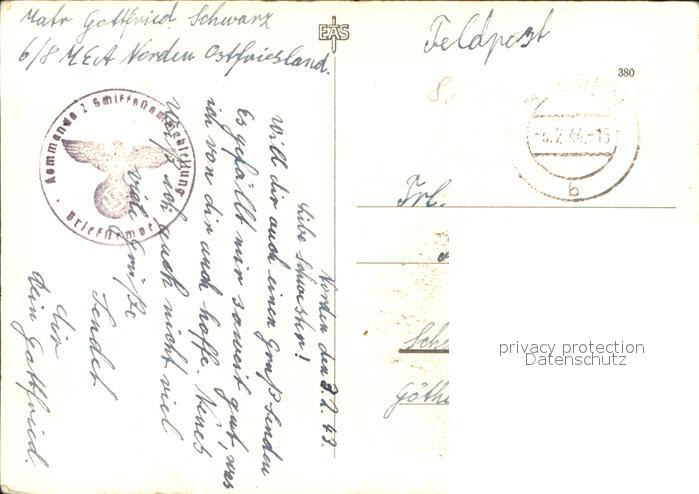 Matr Gottfried Schwarz
6/8 M.E.A Norden Ostfriesland.
EAS
Feldpost
380
8.
-5.2.44.-15
b
Kommando 2. Schiffsstammabteilung
Briefstempel
Frl.
Sch
Göthe
privacy protection
Datenschutz
Norden den 3.2.43
Liebe Schwester!
Will dir auch einen Gruß senden
Es gefällt mir soweit gut, was
ich von dir auch hoffe. Neues
weiß ich auch nicht viel
viele Grüße
Sendet
dir
dein Gottfried.